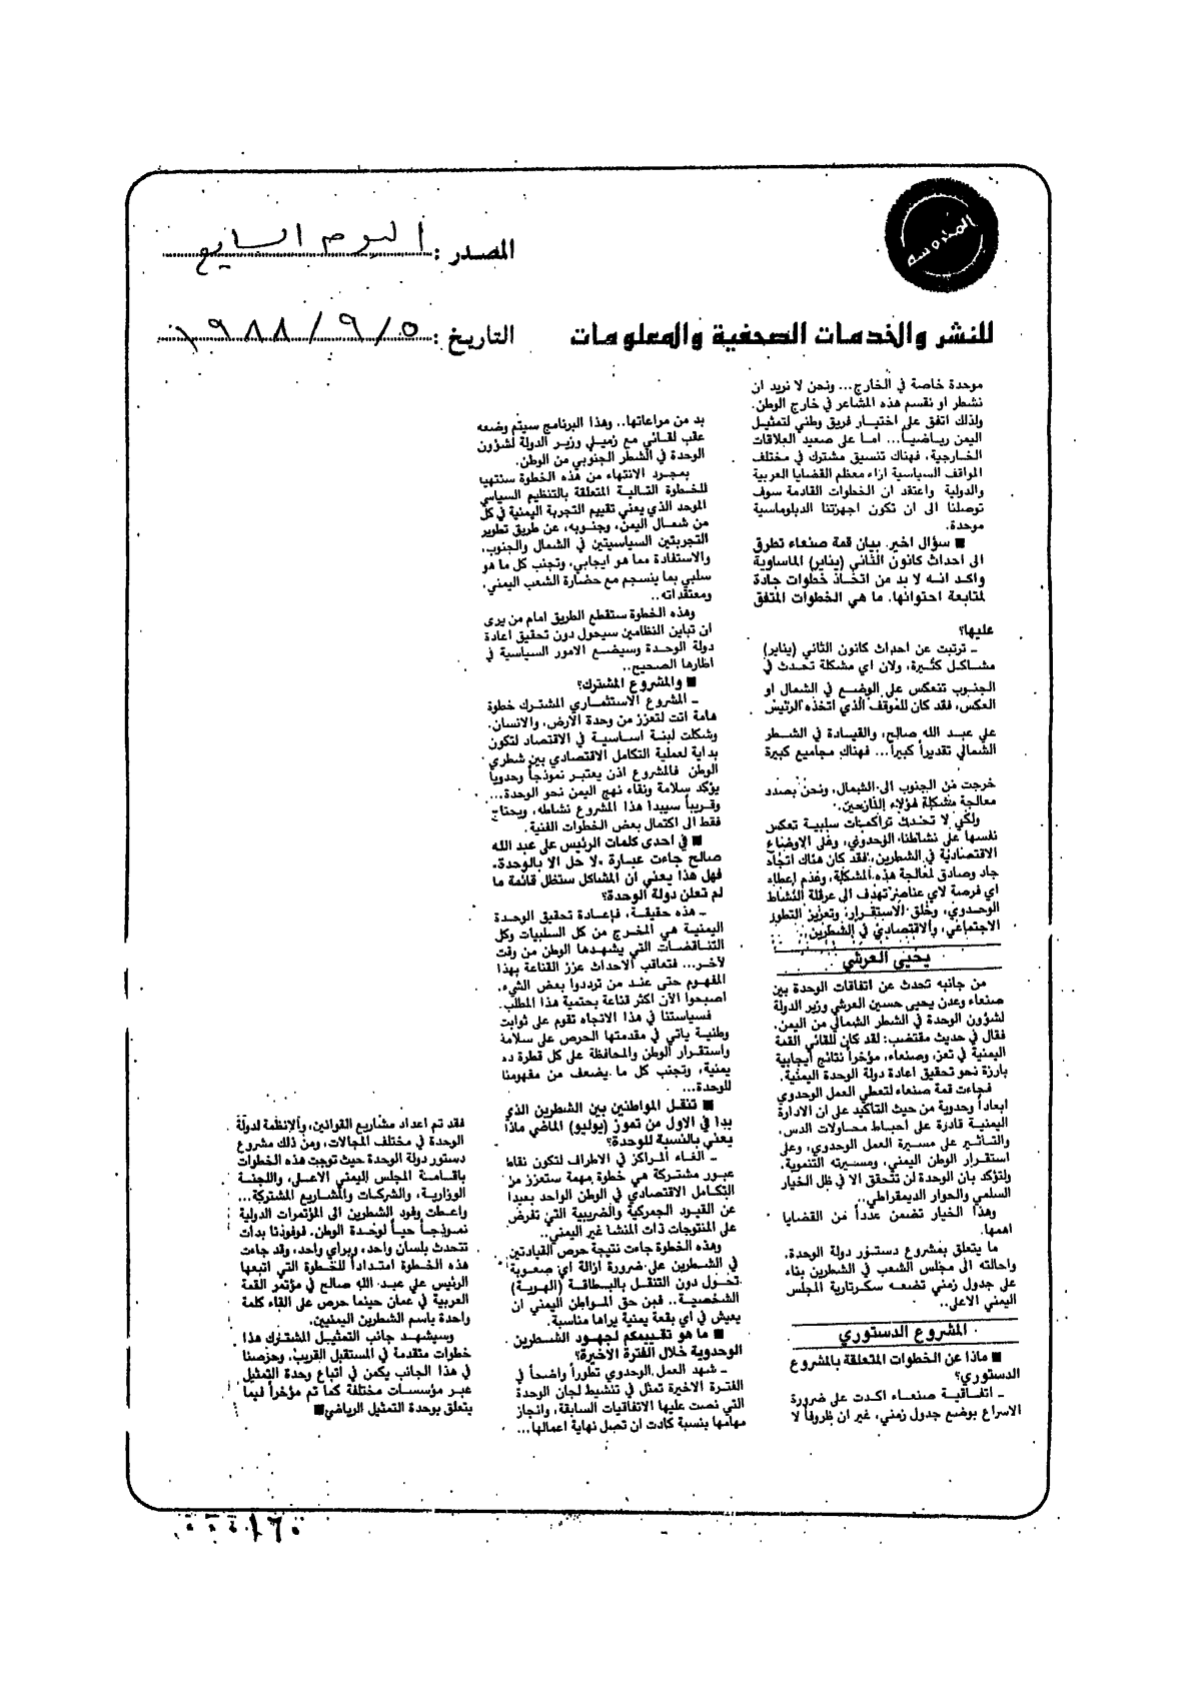 المحروسة
المصدر : اليوم السابع
للنشر والخدمات الصحفية والمعلومات
التاريخ : ٥/٩/١٩٨٨
موحدة خاصة في الخارج... ونحن لا نريد ان
نشطر او نقسم هذه المشاعر في خارج الوطن.
ولذلك اتفق على اختيار فريق وطني لتمثيل
اليمن رياضياً... اما على صعيد العلاقات
الخارجية، فهناك تنسيق مشترك في مختلف
المواقف السياسية ازاء معظم القضايا العربية
والدولية واعتقد ان الخطوات القادمة سوف
توصلنا الى ان تكون اجهزتنا الدبلوماسية
موحدة.
■ سؤال اخير. بيان قمة صنعاء تطرق
الى احداث كانون الثاني (يناير) الماساوية
واكد انه لا بد من اتخاذ خطوات جادة
لمتابعة احتوائها. ما هي الخطوات المتفق
عليها؟
ـ ترتبت عن احداث كانون الثاني (يناير)
مشاكل كثيرة، ولان اي مشكلة تحدث في
الجنوب تنعكس على الوضع في الشمال او
العكس، فقد كان للموقف الذي اتخذه الرئيس
علي عبد الله صالح، والقيادة في الشطر
الشمالي تقديراً كبيراً... فهناك مجاميع كبيرة
خرجت من الجنوب الى الشمال، ونحن بصدد
معالجة مشكلة هؤلاء النازحين.
ولكي لا تحدث تراكمات سلبية تعكس
نفسها على نشاطنا الوحدوي، وعلى الاوضاع
الاقتصادية في الشطرين، فقد كان هناك اتجاه
جاد وصادق لمعالجة هذه المشكلة، وعدم إعطاء
اي فرصة لاي عناصر تهدف الى عرقلة النشاط
الوحدوي، وخلق الاستقرار، وتعزيز التطور
الاجتماعي، والاقتصادي في الشطرين..
يحيى العرشي
من جانبه تحدث عن اتفاقات الوحدة بين
صنعاء وعدن يحيى حسين العرشي وزير الدولة
لشؤون الوحدة في الشطر الشمالي من اليمن.
فقال في حديث مقتضب: لقد كان للقائي القمة
اليمنية في تعز، وصنعاء، مؤخراً نتائج ايجابية
بارزة نحو تحقيق اعادة دولة الوحدة اليمنية.
فجاءت قمة صنعاء لتعطي العمل الوحدوي
ابعاداً وحدوية من حيث التأكيد على ان الادارة
اليمنية قادرة على احباط محاولات الدس،
والتأثير على مسيرة العمل الوحدوي، وعلى
استقرار الوطن اليمني، ومسيرته التنموية.
ولتؤكد بأن الوحدة لن تتحقق الا في ظل الخيار
السلمي والحوار الديمقراطي..
وهذا الخيار تضمن عدداً من القضايا
اهمها.
ما يتعلق بمشروع دستور دولة الوحدة.
واحالته الى مجلس الشعب في الشطرين بناء
على جدول زمني تضعه سكرتارية المجلس
اليمني الاعلى..
المشروع الدستوري
■ ماذا عن الخطوات المتعلقة بالمشروع
الدستوري؟
ـ اتفاقية صنعاء اكدت على ضرورة
الاسراع بوضع جدول زمني، غير ان ظروفاً لا
بد من مراعاتها.. وهذا البرنامج سيتم وضعه
عقب لقائي مع زميلي وزير الدولة لشؤون
الوحدة في الشطر الجنوبي من الوطن.
بمجرد الانتهاء من هذه الخطوة سنتهيأ
للخطوة التالية المتعلقة بالتنظيم السياسي
الموحد الذي يعني تقييم التجربة اليمنية في كل
من شمال اليمن، وجنوبه، عن طريق تطوير
التجربتين السياسيتين في الشمال والجنوب.
والاستفادة مما هو ايجابي، وتجنب كل ما هو
سلبي بما ينسجم مع حضارة الشعب اليمني،
ومعتقداته..
وهذه الخطوة ستقطع الطريق امام من يرى
ان تباين النظامين سيحول دون تحقيق اعادة
دولة الوحدة وسيضع الامور السياسية في
اطارها الصحيح..
■ والمشروع المشترك؟
ـ المشروع الاستثماري المشترك خطوة
هامة اتت لتعزز من وحدة الارض، والانسان.
وشكلت لبنة اساسية في الاقتصاد لتكون
بداية لعملية التكامل الاقتصادي بين شطري
الوطن فالمشروع اذن يعتبر نموذجاً وحدويا
يؤكد سلامة ونقاء نهج اليمن نحو الوحدة...
وقريباً سيبدا هذا المشروع نشاطه، ويحتاج
فقط الى اكتمال بعض الخطوات الفنية.
■ في احدى كلمات الرئيس علي عبد الله
صالح جاءت عبارة «لا حل الا بالوحدة».
فهل هذا يعني ان المشاكل ستظل قائمة ما
لم تعلن دولة الوحدة؟
ـ هذه حقيقة، فإعادة تحقيق الوحدة
اليمنية هي المخرج من كل السلبيات وكل
التناقضات التي يشهدها الوطن من وقت
لآخر... فتعاقب الاحداث عزز القناعة بهذا
المفهوم حتى عند من ترددوا بعض الشيء.
اصبحوا الآن اكثر قناعة بحتمية هذا المطلب.
فسياستنا في هذا الاتجاه تقوم على ثوابت
وطنية ياتي في مقدمتها الحرص على سلامة
واستقرار الوطن والمحافظة على كل قطرة دم
يمنية، وتجنب كل ما يضعف من مفهومنا
للوحدة...
■ تنقل المواطنين بين الشطرين الذي
بدا في الاول من تموز (يوليو) الماضي ماذا
يعني بالنسبة للوحدة؟
ـ الغاء المراكز في الاطراف لتكون نقاط
عبور مشتركة هي خطوة مهمة ستعزز من
التكامل الاقتصادي في الوطن الواحد بعيدا
عن القيود الجمركية والضريبية التي تفرض
على المنتوجات ذات المنشا غير اليمني..
وهذه الخطوة جاءت نتيجة حرص القيادتين
في الشطرين على ضرورة ازالة اي صعوبة
تحول دون التنقل بالبطاقة (الهوية)
الشخصية.. فمن حق المواطن اليمني ان
يعيش في اي بقعة يمنية يراها مناسبة.
■ ما هو تقييمكم لجهود الشطرين
الوحدوية خلال الفترة الاخيرة؟
ـ شهد العمل الوحدوي تطوراً واضحاً في
الفترة الاخيرة تمثل في تنشيط لجان الوحدة
التي نصت عليها الاتفاقيات السابقة، وانجاز
مهامها بنسبة كادت ان تصل نهاية اعمالها...
فقد تم اعداد مشاريع القوانين، والانظمة لدولة
الوحدة في مختلف المجالات، ومن ذلك مشروع
دستور دولة الوحدة حيث توجت هذه الخطوات
باقامة المجلس اليمني الاعلى، واللجنة
الوزارية، والشركات والمشاريع المشتركة...
واعطت وفود الشطرين الى المؤتمرات الدولية
نموذجاً حياً لوحدة الوطن. فوفودنا بدأت
تتحدث بلسان واحد، وبراي واحد، وقد جاءت
هذه الخطوة امتداداً للخطوة التي اتبعها
الرئيس علي عبد الله صالح في مؤتمر القمة
العربية في عمان حينما حرص على القاء كلمة
واحدة باسم الشطرين اليمنيين.
وسيشهد جانب التمثيل المشترك هذا
خطوات متقدمة في المستقبل القريب، وحرصنا
في هذا الجانب يكمن في اتباع وحدة التمثيل
عبر مؤسسات مختلفة كما تم مؤخراً فيما
يتعلق بوحدة التمثيل الرياضي■